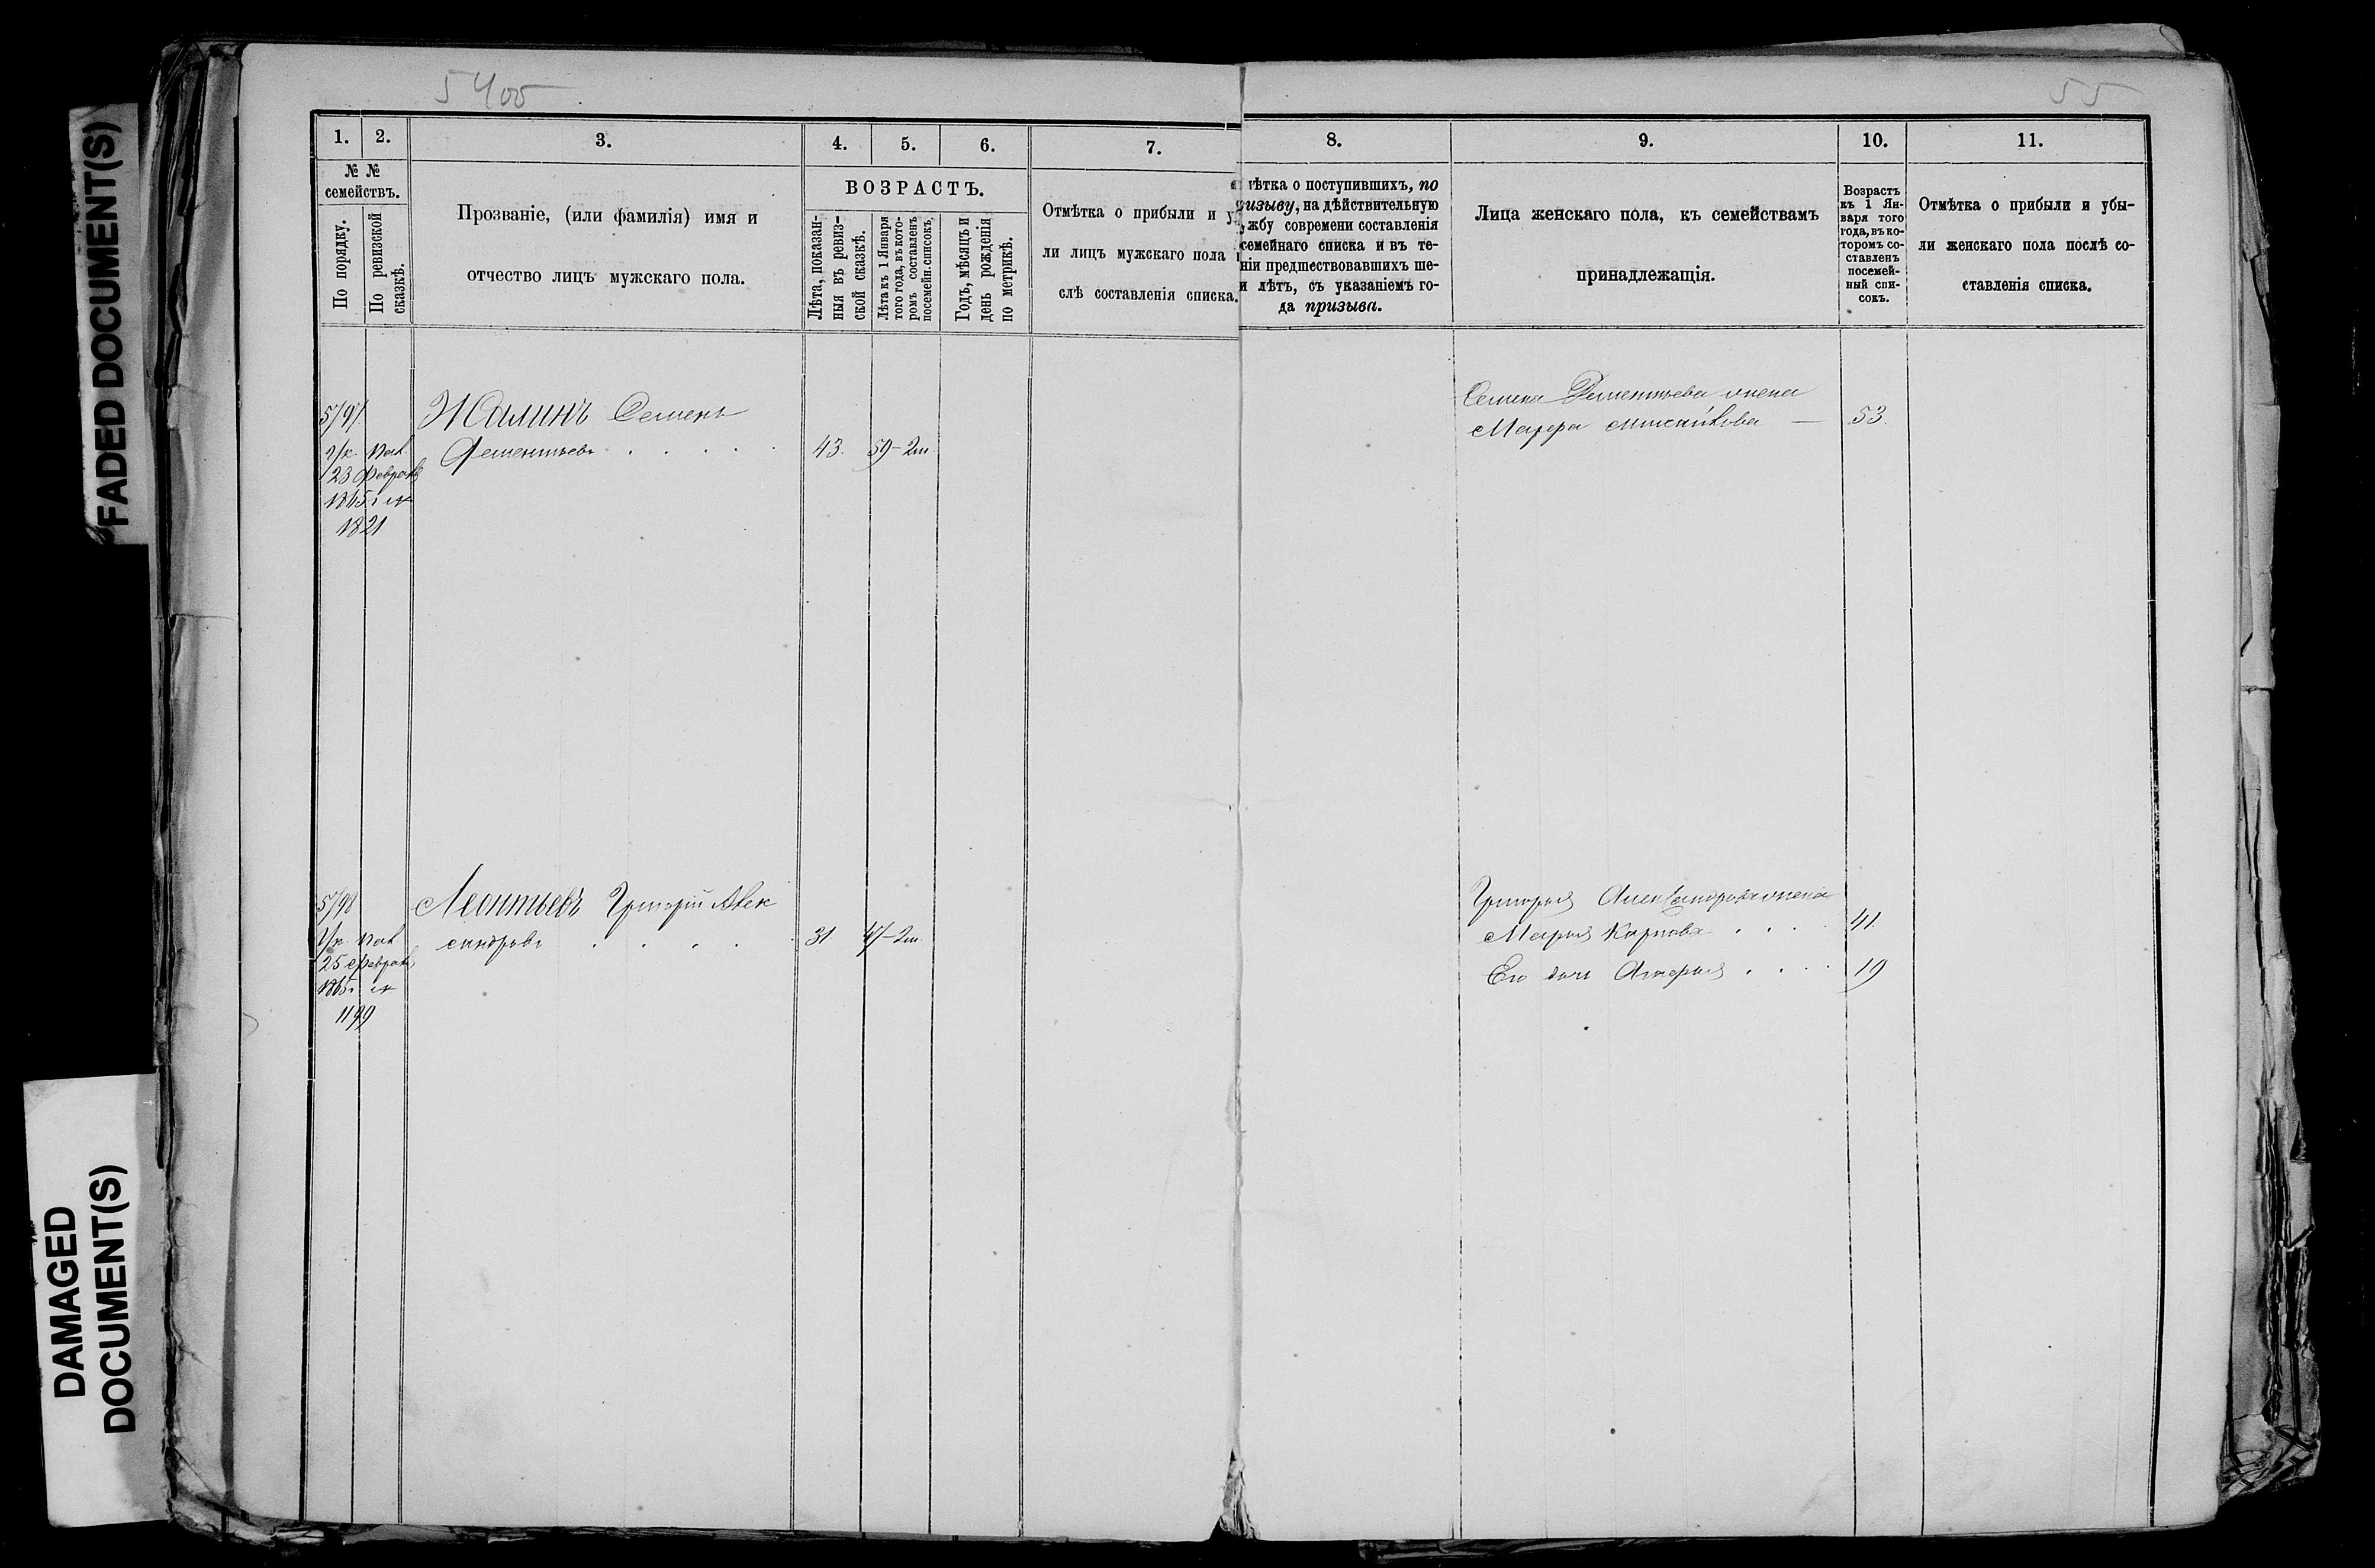 FADED DOCUMENT(S)
DAMAGED
DOCUMENT(S)
5400
55
1. 2. 3. 4. 5. 6. 7. 8. 9. 10. 11.
№ №
семействъ.
По порядку.
По ревизской
сказкѣ.
Прозваніе, (или фамилія) имя и
отчество лицъ мужскаго пола.
ВОЗРАСТЪ.
Лѣта, показан-
ныя въ ревиз-
ской сказкѣ.
Лѣта къ 1 Января
того года, въ кото-
ромъ составленъ
посемейн. списокъ.
Годъ, мѣсяцъ и
день рожденія
по метрикѣ.
Отмѣтка о прибыли и у
ли лицъ мужскаго пола
слѣ составленія списка.
ѣтка о поступившихъ, по
изыву, на дѣйствительную
жбу современи составленія
семейнаго списка и въ те-
ніи предшествовавшихъ ше-
и лѣтъ, съ указаніемъ го-
да призыва.
Лица женскаго пола, къ семействамъ
принадлежащія.
Возрастъ
къ 1 Ян-
варя того
года, въ ко-
торомъ со-
ставленъ
посемей-
ный спи-
сокъ.
Отмѣтка о прибыли и убы-
ли женскаго пола послѣ со-
ставленія списка.
5797
Жалинъ Семенъ
Дементьевъ . . . . . 43. 59-2м
23 Февраля
1865 г
1821
Семена Дементьева жена
Марфа — 53.
5798
Леонтьевъ Григорій Алек
сандровъ . . . . . 31 47-2м
25 Февраля
1865 г
1199
Григорія Александрова жена
Марья Карпова . . . . 41.
Его дочь . . . . 19